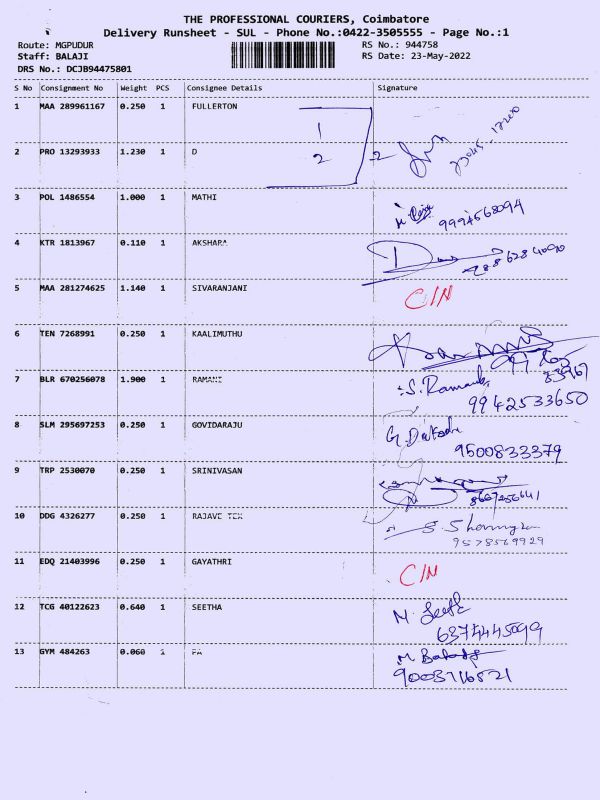 THE PROFESSIONAL COURIERS, Coimbatore
Delivery Runsheet - SUL - Phone No.:0422-3505555 - Page No.:1
Route: MGPUDUR RS No.: 944758
Staff: BALAJI RS Date: 23-May-2022
DRS No.: DCJB94475801
S No Consignment No Weight PCS Consignee Details Signature
1 MAA 289961167 0.250 1 FULLERTON
1
2 PRO 13293933 1.230 1 D
2 2
3 POL 1486554 1.000 1 MATHI
9994568094
4 KTR 1813967 0.110 1 AKSHARA
5 MAA 281274625 1.140 1 SIVARANJANI C/N
6 TEN 7268991 0.250 1 KAALIMUTHU
7 BLR 670256078 1.900 1 RAMANI
9942533650
8 SLM 295697253 0.250 1 GOVIDARAJU
9500833379
9 TRP 2530070 0.250 1 SRINIVASAN
10 DDG 4326277 0.250 1 RAJAVE TEX
9578569929
11 EDQ 21403996 0.250 1 GAYATHRI C/N
12 TCG 40122623 0.640 1 SEETHA
6374445099
13 GYM 484263 0.060 1
9003716521